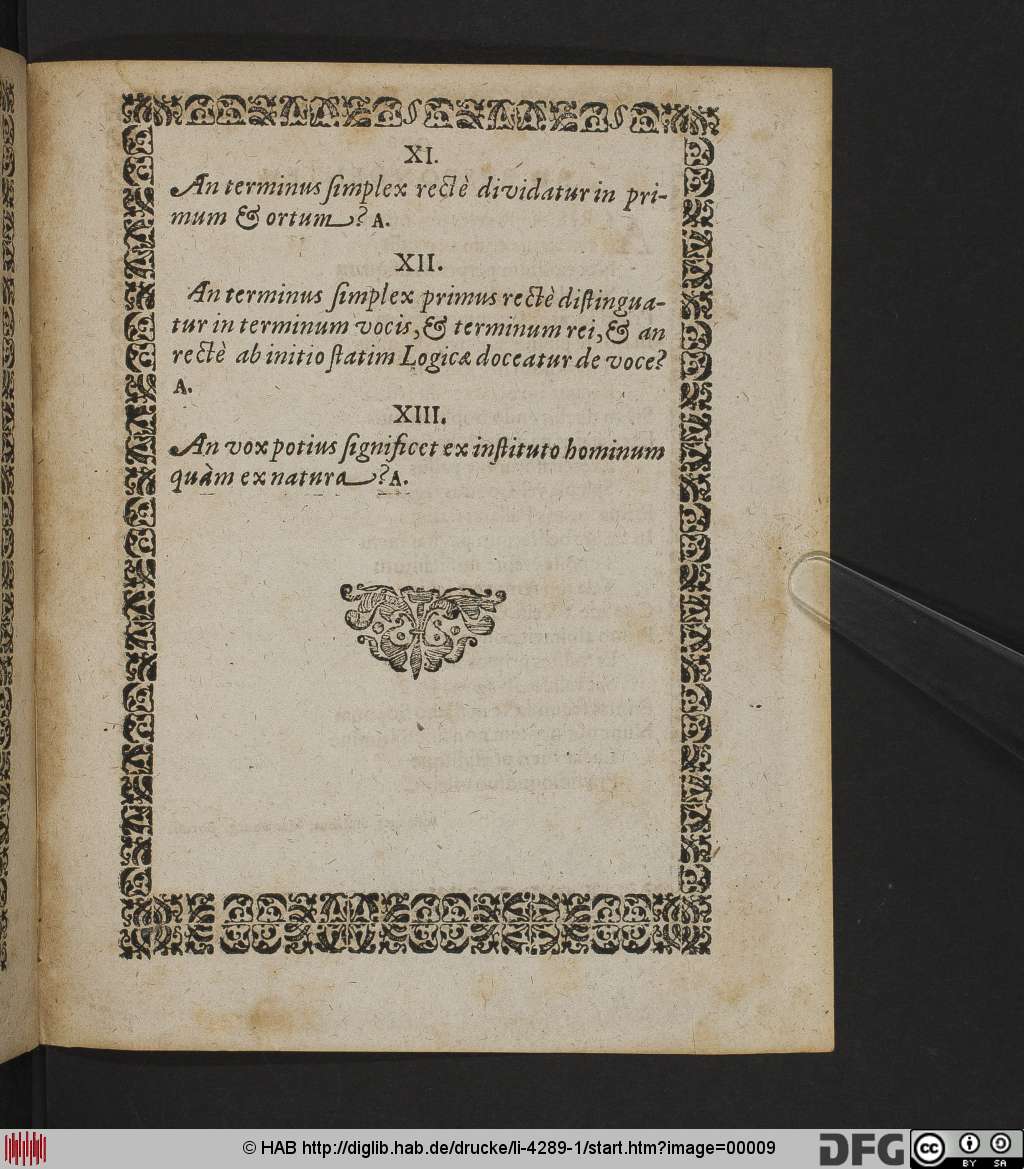 XI.
An terminus ſimplex rectè dividatur in pri-
mum & ortum? A.
XII.
An terminus ſimplex primus rectè diſtingua-
tur in terminum vocis, & terminum rei, & an
rectè ab initio ſtatim Logicæ doceatur de voce?
A.
XIII.
An vox potius ſignificet ex inſtituto hominum
quàm ex natura? A.
© HAB http://diglib.hab.de/drucke/li-4289-1/start.htm?image=00009
DFG
cc BY SA